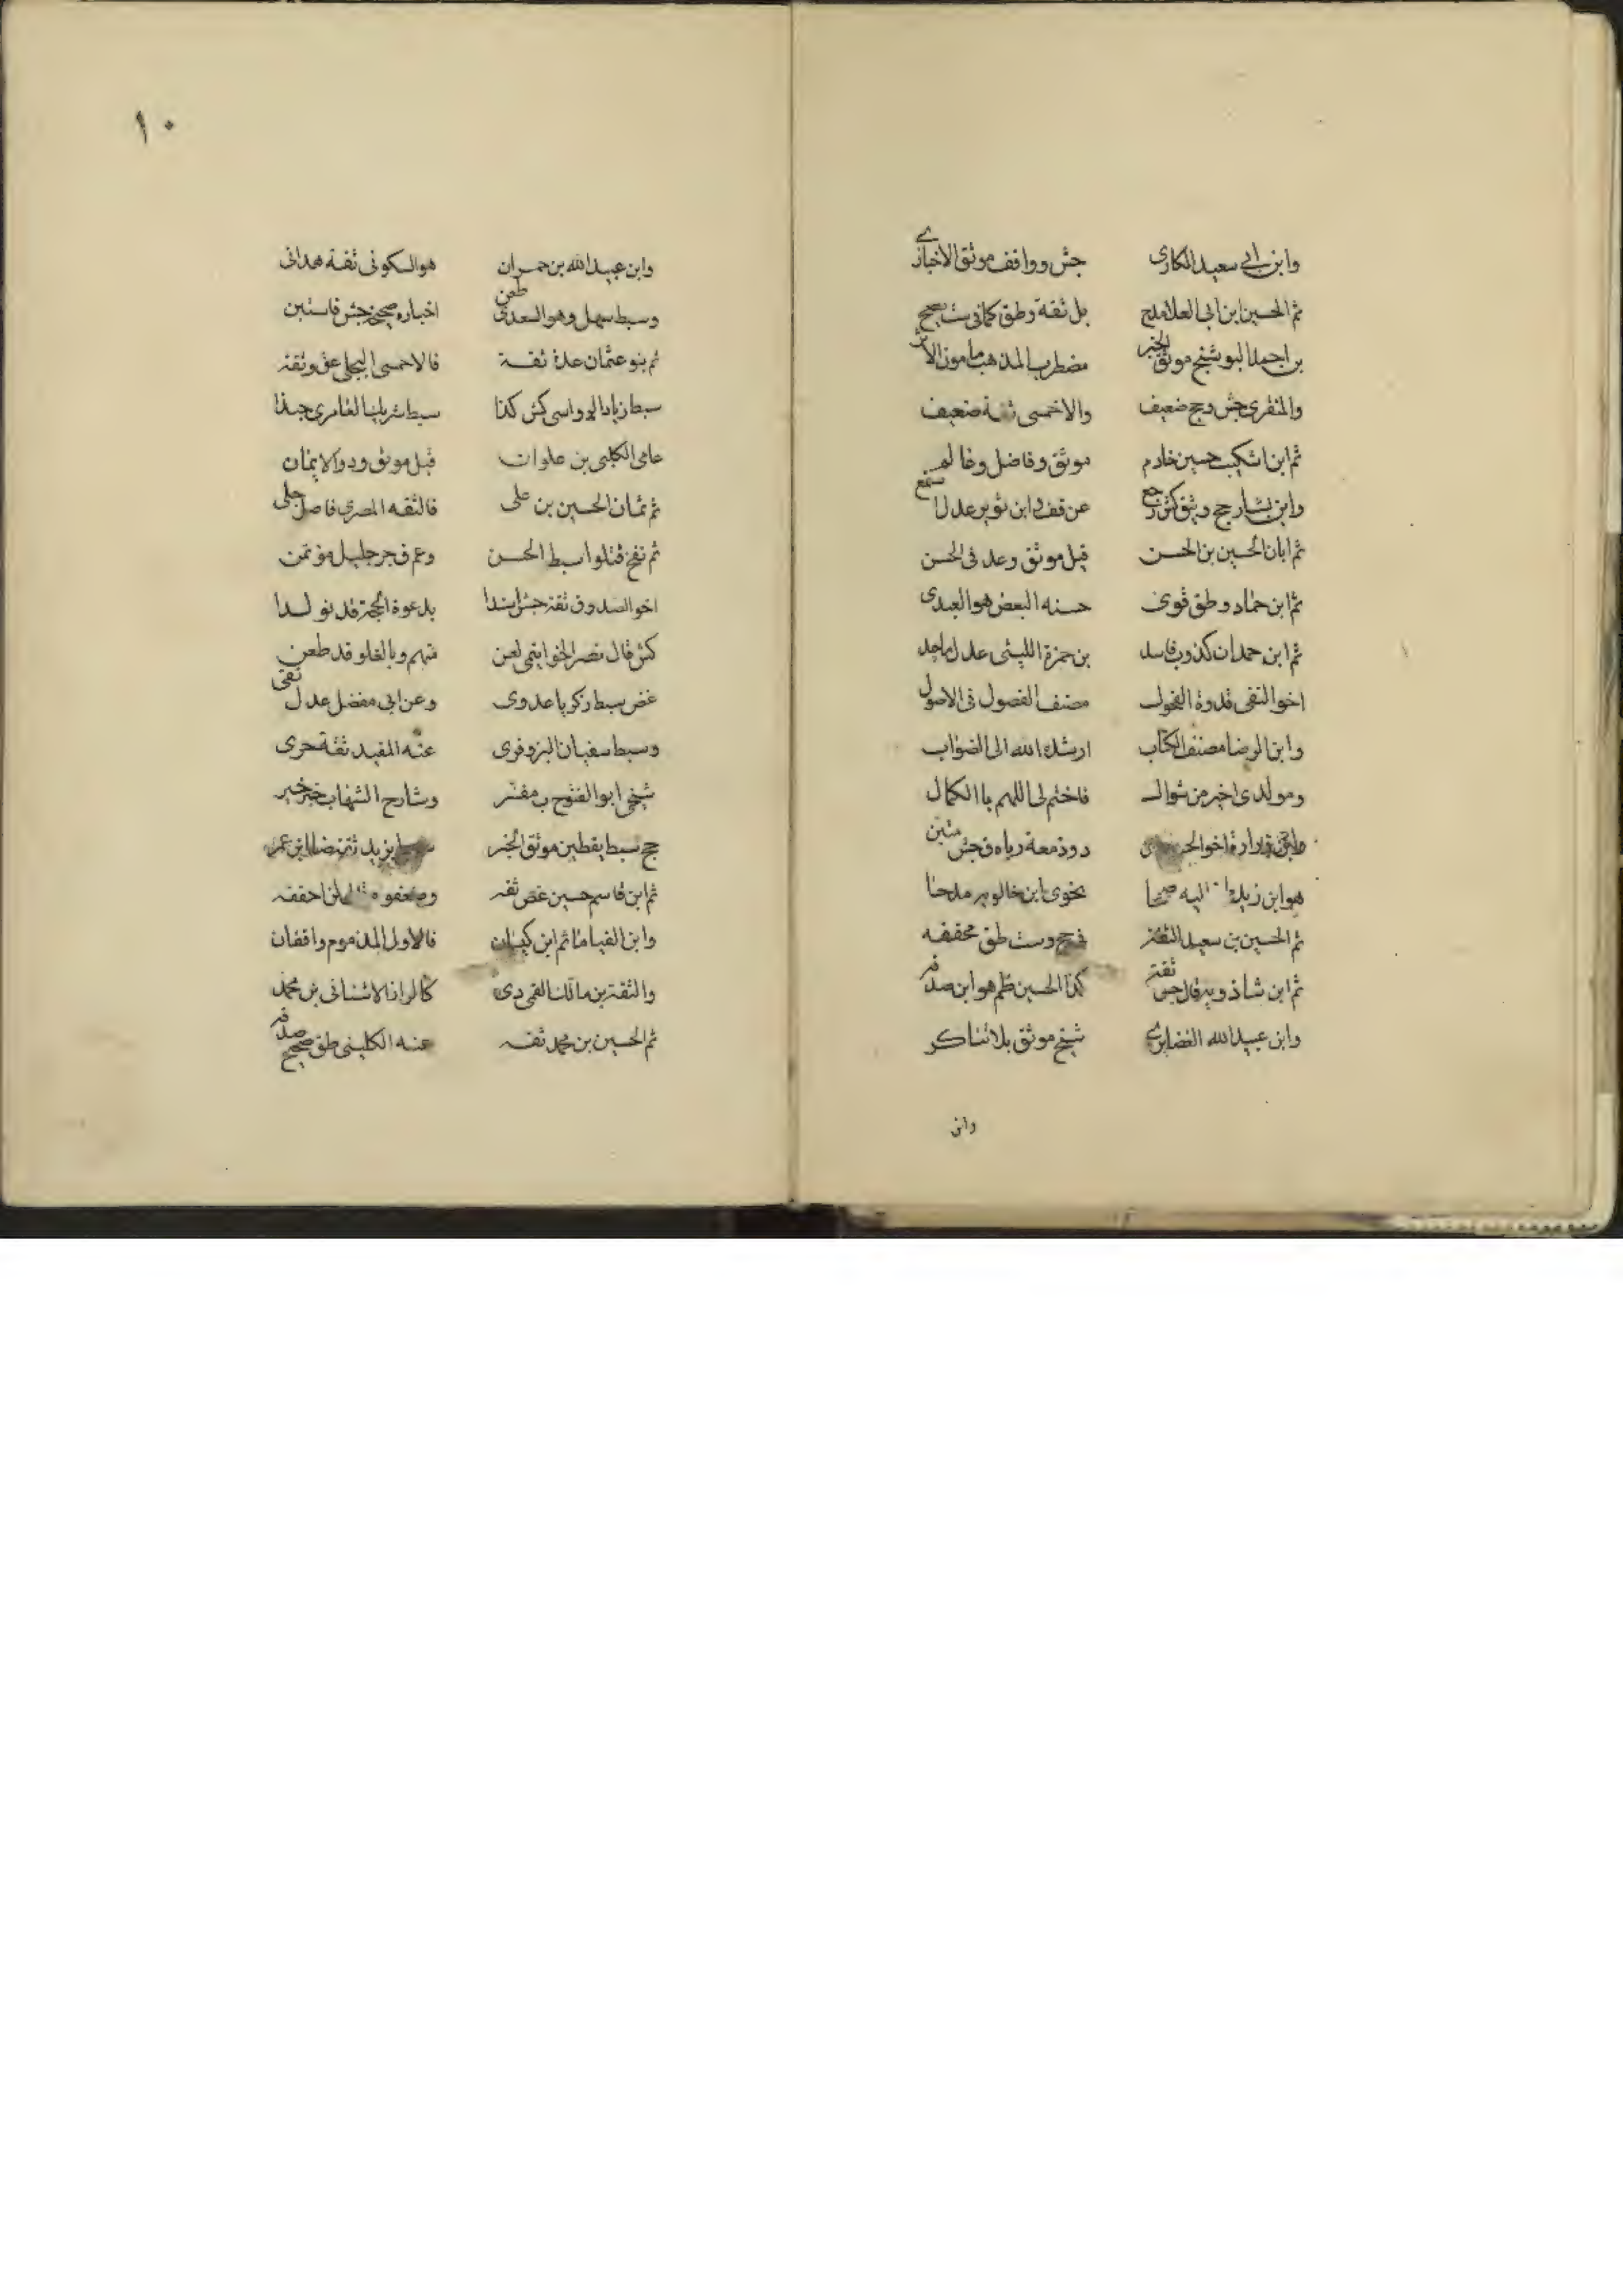 وابن ابي سعيد المكارى جش وواقف موثق الاخبارے
ثم الحسين ابن ابي العلا ملح بل ثقة وطق كما في ست يصح
بن احمد البوشنج موثق الخبر مضطرب المذهب مامون الاثر
والمنقرى جش وجح ضعيف والاخمسى ثقة ضعيف
ثم ابن اشكيب حسين خادم موثق وفاضل وعالم
وابن بشار جح وثق كش رجع عن قف وابن ثوير عدل
ثم ابان الحسين بن الحسن قيل موثق وعد في الحسن
ثم ابن حماد وطق قوى حسنه البعض هو العبدى
ثم ابن حمدان كذوب فاسد بن حمزة الليثى عدل ماجد
اخو التقى قدوة الفحول مصنف الفصول في الاصول
وابن الرضا مصنف الكتاب ارشده الله الى الصواب
ومولدى اخير من شوال فاختم لى اللهم با الكمال
زرارة اخو دودمعة رباه ق جش متين
هو ابن زيد اليه نحوى ابن خالويه مدحا
ثم الحسين بن سعيد الثقة وست طق محققه
ثم ابن شاذويه قال جش ثقة كذا الحسين ظم هو ابن صدقه
وابن عبيد الله الغضايرے شيخ موثق بلا تناكر
وابن
١٠
وابن عبيد الله بن حمران هو السكونى ثقة همدانى
وسبط سهل وهو السعدى طعن اخباره صحح جش فاستبن
ثم بنو عثمان عدة ثقة فالاحمسى البجلى عق وثقة
سبط زياد الرواسى كش كذا سبط شريك العامرى حبذا
عامى الكلبى بن علوان قيل موثق وذو الايمان
ثم ثمان الحسين بن على فالثقه المصرى فاضل جلى
ثم نفخ قتلوا سبط الحسن وعم ق جر جليل مؤتمن
اخو الصدوق ثقة جش اسندا بدعوة الحجة قد تولدا
كش قال نصر الخواتيمى لعن متهم وبالغلو قد طعن
غض سبط زكريا عدوى وعن ابى مفضل عدل تقى
وسبط سفيان البزوفرى عنه المفيد ثقة حرى
شيخى ابو الفتوح ب مفسر وشارح الشهاب خير خبر
جح سبط يقطين موثق الخبر يزيد ثقة ضا ابن عمر
ثم ابن قاسم حسين غض ثقه وضعفوه لنا حققه
وابن القياما ثم ابن كيسان فالاول المذموم واقفان
والثقة بن مالك القمى دى كالرازى الاشنانى بن محمد
ثم الحسين بن محمد ثقه عنه الكلينى طق صحيح صدقه